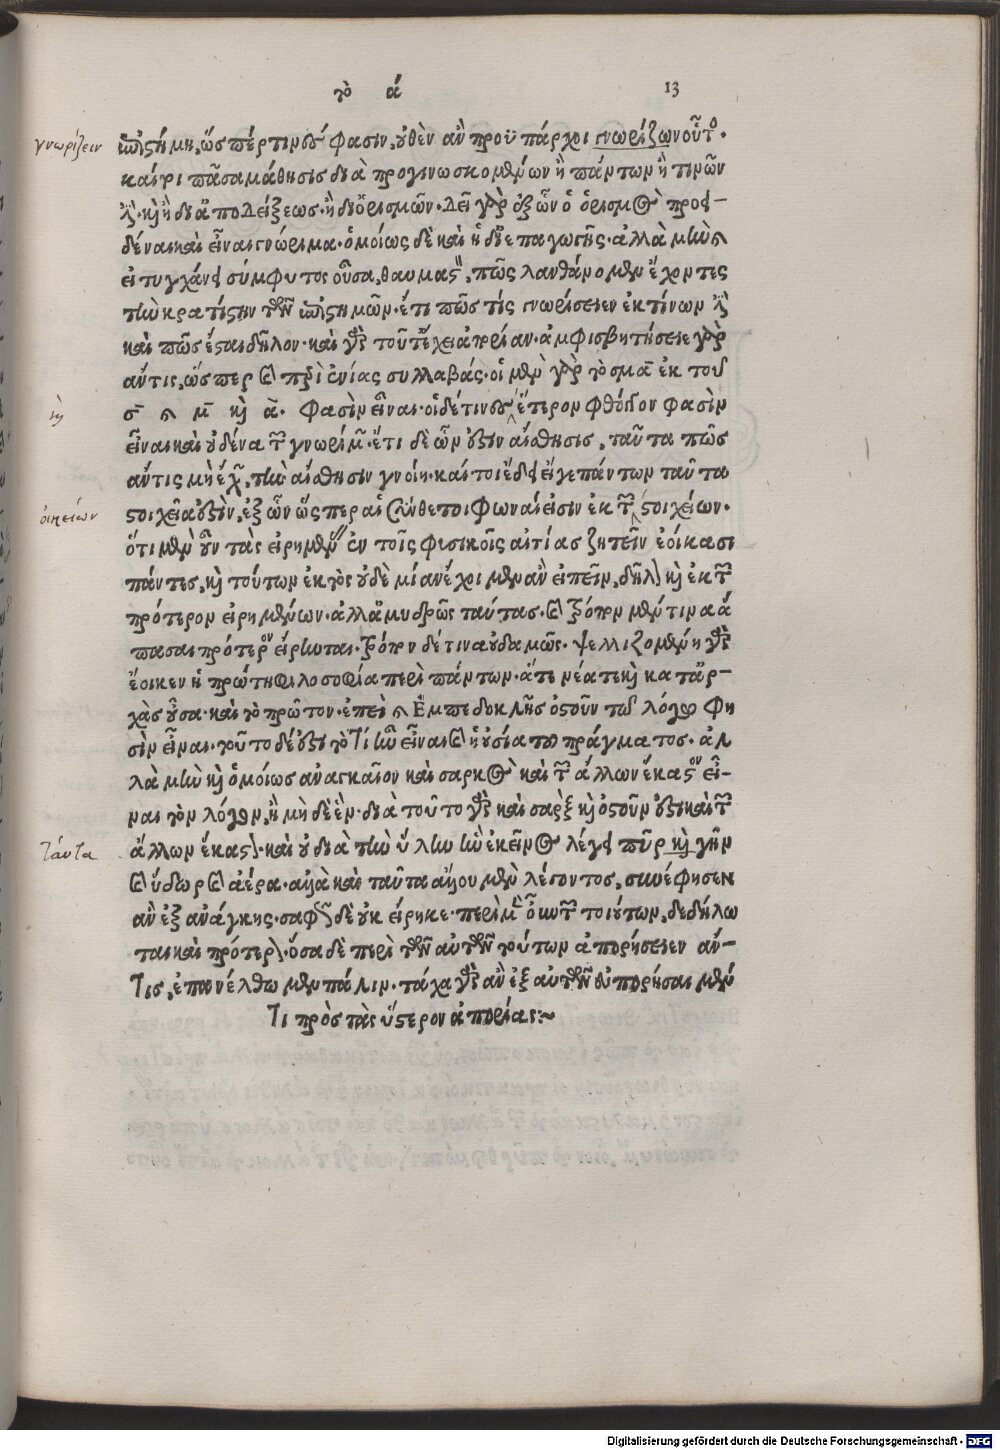 τὸ ά 13
γνωρίζειν
ἐπιστήμη, ὥσπέρ τινές φασιν, οὐθὲν ἂν προϋπάρχοι γνωρίζων οὗτος.
καίτοι πᾶσα μάθησις διὰ προγινωσκομένων ἢ πάντων ἢ τινῶν
ἐστὶ. καὶ ἢ δι' ἀποδείξεως. ἢ δι' ὁρισμῶν. δεῖ γὰρ ἐξ ὧν ὁ ὁρισμὸς προει-
δέναι καὶ εἶναι γνώριμα. ὁμοίως δὲ καὶ ἡ δι' ἐπαγωγῆς. ἀλλὰ μὴν
εἰ τυγχάνει σύμφυτος οὖσα, θαυμαστὸν, πῶς λανθάνομεν ἔχοντες
τὴν κρατίστην τῶν ἐπιστημῶν. ἔτι πῶς τίς γνωρίσειεν ἐκ τίνων ἐστὶ
καὶ πῶς ἔσται δῆλον. καὶ γὰρ τοῦτ' ἔχει ἀπορίαν. ἀμφισβητήσειε γὰρ
ἄν τις, ὥσπερ καὶ περὶ ἐνίας συλλαβάς. οἱ μὲν γὰρ τὸ σμα ἐκ τοῦ
σ καὶ μ καὶ α. φασὶν εἶναι. οἱ δέ τινες ἕτερον φθόγγον φασὶν
εἶναι καὶ οὐδένα τῶν γνωρίμων. ἔτι δὲ ὧν ἐστὶν αἴσθησις, ταῦτα πῶς
ἄν τις μὴ ἔχων, τὴν αἴσθησιν γνοίη. καίτοι ἔδει εἴγε πάντων ταῦτα
οἰκείων
στοιχεῖα ἐστὶν, ἐξ ὧν ὥσπερ αἱ σύνθετοι φωναί εἰσιν ἐκ τῶν στοιχείων.
ὅτι μὲν οὖν τὰς εἰρημένας ἐν τοῖς φυσικοῖς αἰτίας ζητεῖν ἐοίκασι
πάντες, καὶ τούτων ἐκτὸς οὐδὲ μίαν ἔχοιμεν ἂν εἰπεῖν, δῆλον καὶ ἐκ τῶν
πρότερον εἰρημένων. ἀλλ' ἀμυδρῶς ταύτας. καὶ τρόπον μέν τινα ἅ
πασαι πρότερον εἴρηνται. τρόπον δέ τινα οὐδαμῶς. ψελλιζομένῃ γὰρ
ἔοικεν ἡ πρώτη φιλοσοφία περὶ πάντων. ἅτε νέα τε καὶ κατ' ἀρ-
χὰς οὖσα. καὶ τὸ πρῶτον. ἐπεὶ καὶ Ἐμπεδοκλῆς ὀστοῦν τῷ λόγῳ φη
σὶν εἶναι. τοῦτο δ' ἐστὶ τὸ τί ἦν εἶναι καὶ ἡ οὐσία τοῦ πράγματος. ἀλ
λὰ μὴν καὶ ὁμοίως ἀναγκαῖον καὶ σαρκὸς καὶ τῶν ἄλλων ἕκαστον εἶ-
ναι τὸν λόγον, ἢ μὴ δὲ ἕν. διὰ τοῦτο γὰρ καὶ σὰρξ καὶ ὀστοῦν ἐστὶ καὶ τῶν
ταύτα
ἄλλων ἕκαστον. καὶ οὐ διὰ τὴν ὕλην ἣν ἐκεῖνος λέγει πῦρ καὶ γῆν
καὶ ὕδωρ καὶ ἀέρα. ἀλλὰ καὶ ταῦτα ἄλλου μὲν λέγοντος, συνέφησεν
ἂν ἐξ ἀνάγκης. σαφῶς δὲ οὐκ εἴρηκε. περὶ μὲν οὖν τῶν τοιούτων, δεδήλω
ται καὶ πρότερον. ὅσα δὲ περὶ τῶν αὐτῶν τούτων ἀπορήσειεν ἄν-
τις, ἐπανέλθωμεν πάλιν. τάχα γὰρ ἂν ἐξ αὐτῶν εὐπορήσαιμέν
τι πρὸς τὰς ὕστερον ἀπορίας:~
Digitalisierung gefördert durch die Deutsche Forschungsgemeinschaft - DFG